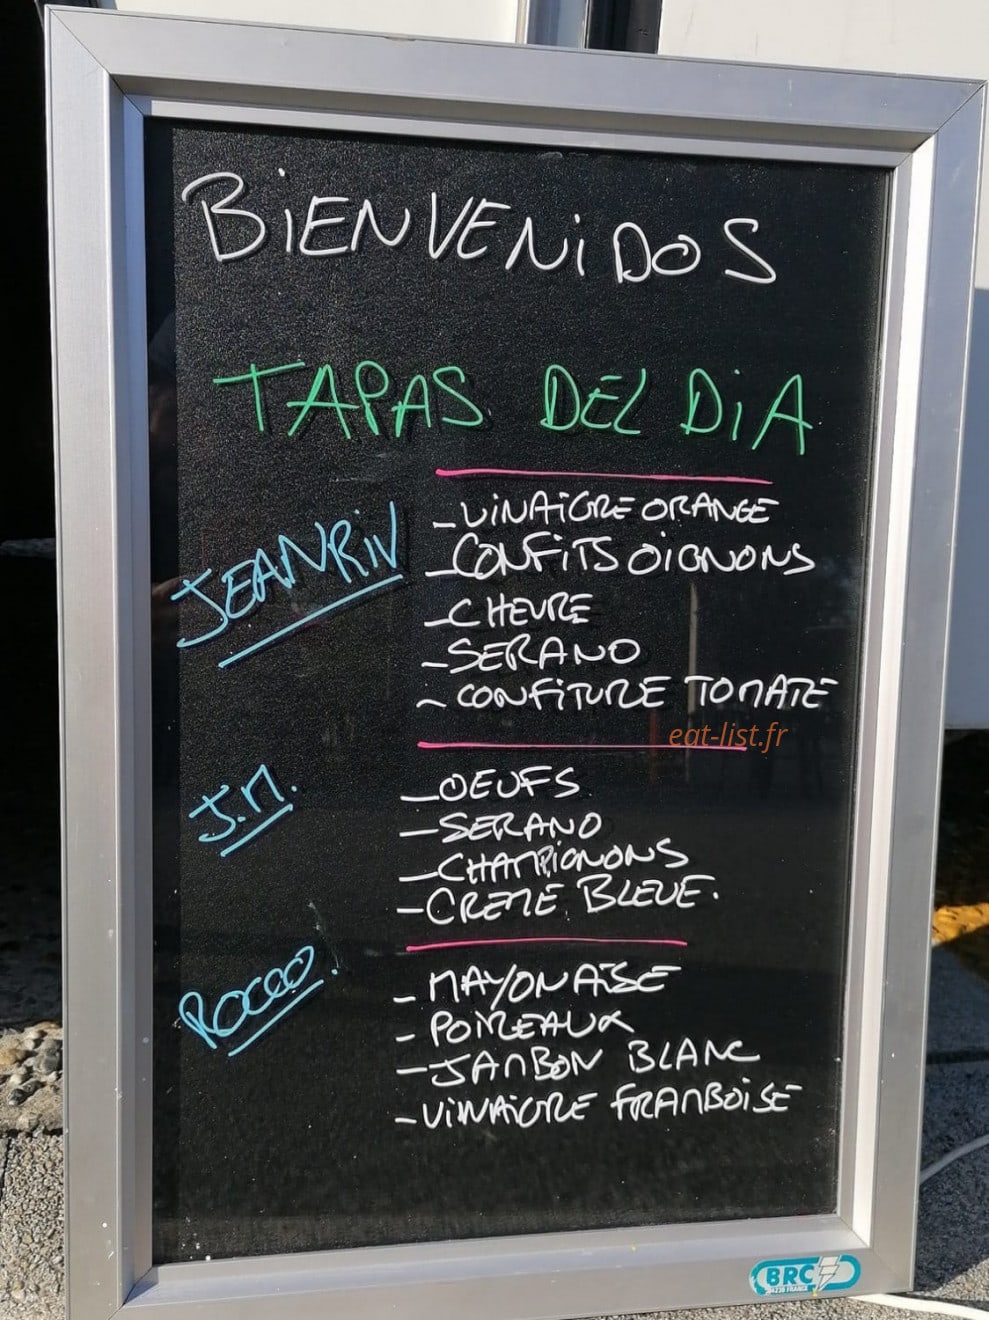 BIENVENIDOS
TAPAS DEL DIA
JEANRIV
- VINAIGRE ORANGE
- CONFITS OIGNONS
- CHEVRE
- SERANO
- CONFITURE TOMATE
eat-list.fr
J.M.
- OEUFS
- SERANO
- CHAMPIGNONS
- CREME BLEUE.
ROCCO.
- MAYONAISE
- POIREAUX
- JAMBON BLANC
- VINAIGRE FRAMBOISE
BRC
FRANCE